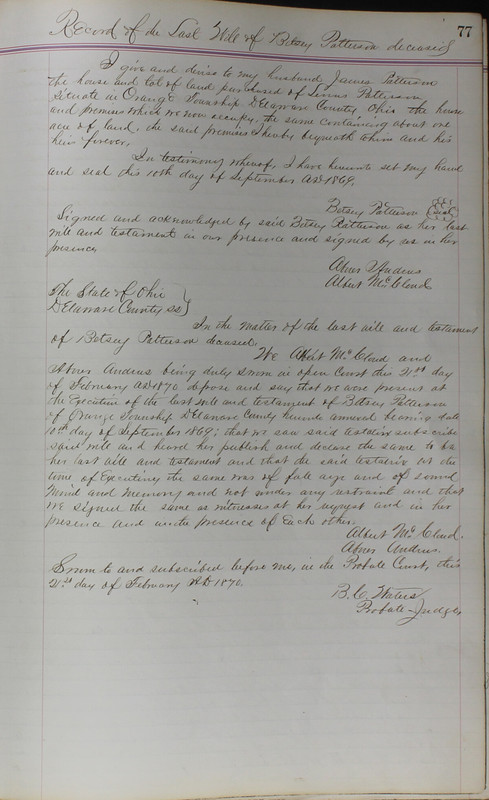 77
Record of the Last Will of Betsey Patterson deceased
I give and devise to my husband James Patterson
the house and lot of land purchased of Linus Patterson
situate in Orange Township Delaware County Ohio the house
and premises which we now occupy, the same containing about one
acre of land, the said premises I hereby bequeath to him and his
heirs forever.
In testimony whereof, I have hereunto set my hand
and seal this 10th day of September AD 1869.
Betsey Patterson (seal)
Signed and acknowledged by said Betsey Patterson as her last
will and testament in our presence and signed by us in her
presence
Abner Andrus
Albert McCloud
The State of Ohio
Delaware County ss
In the matter of the last will and testament
of Betsey Patterson deceased.
We Albert McCloud and
Abner Andrus being duly sworn in open Court this 21st day
of February AD 1870 depose and say that we were present at
the Execution of the last will and testament of Betsey Patterson
of Orange Township Delaware County hereunto annexed bearing date
10th day of September 1869; that we saw said testatrix subscribe
said will and heard her publish and declare the same to be
her last will and testament and that the said testatrix at the
time of Executing the same was of full age and of sound
mind and memory and not under any restraint and that
we signed the same as witnesses at her request and in her
presence and in the presence of Each other.
Albert McCloud.
Abner Andrus.
Sworn to and subscribed before me, in the Probate Court, this
21st day of February AD 1870.
B. C. Waters
Probate Judge